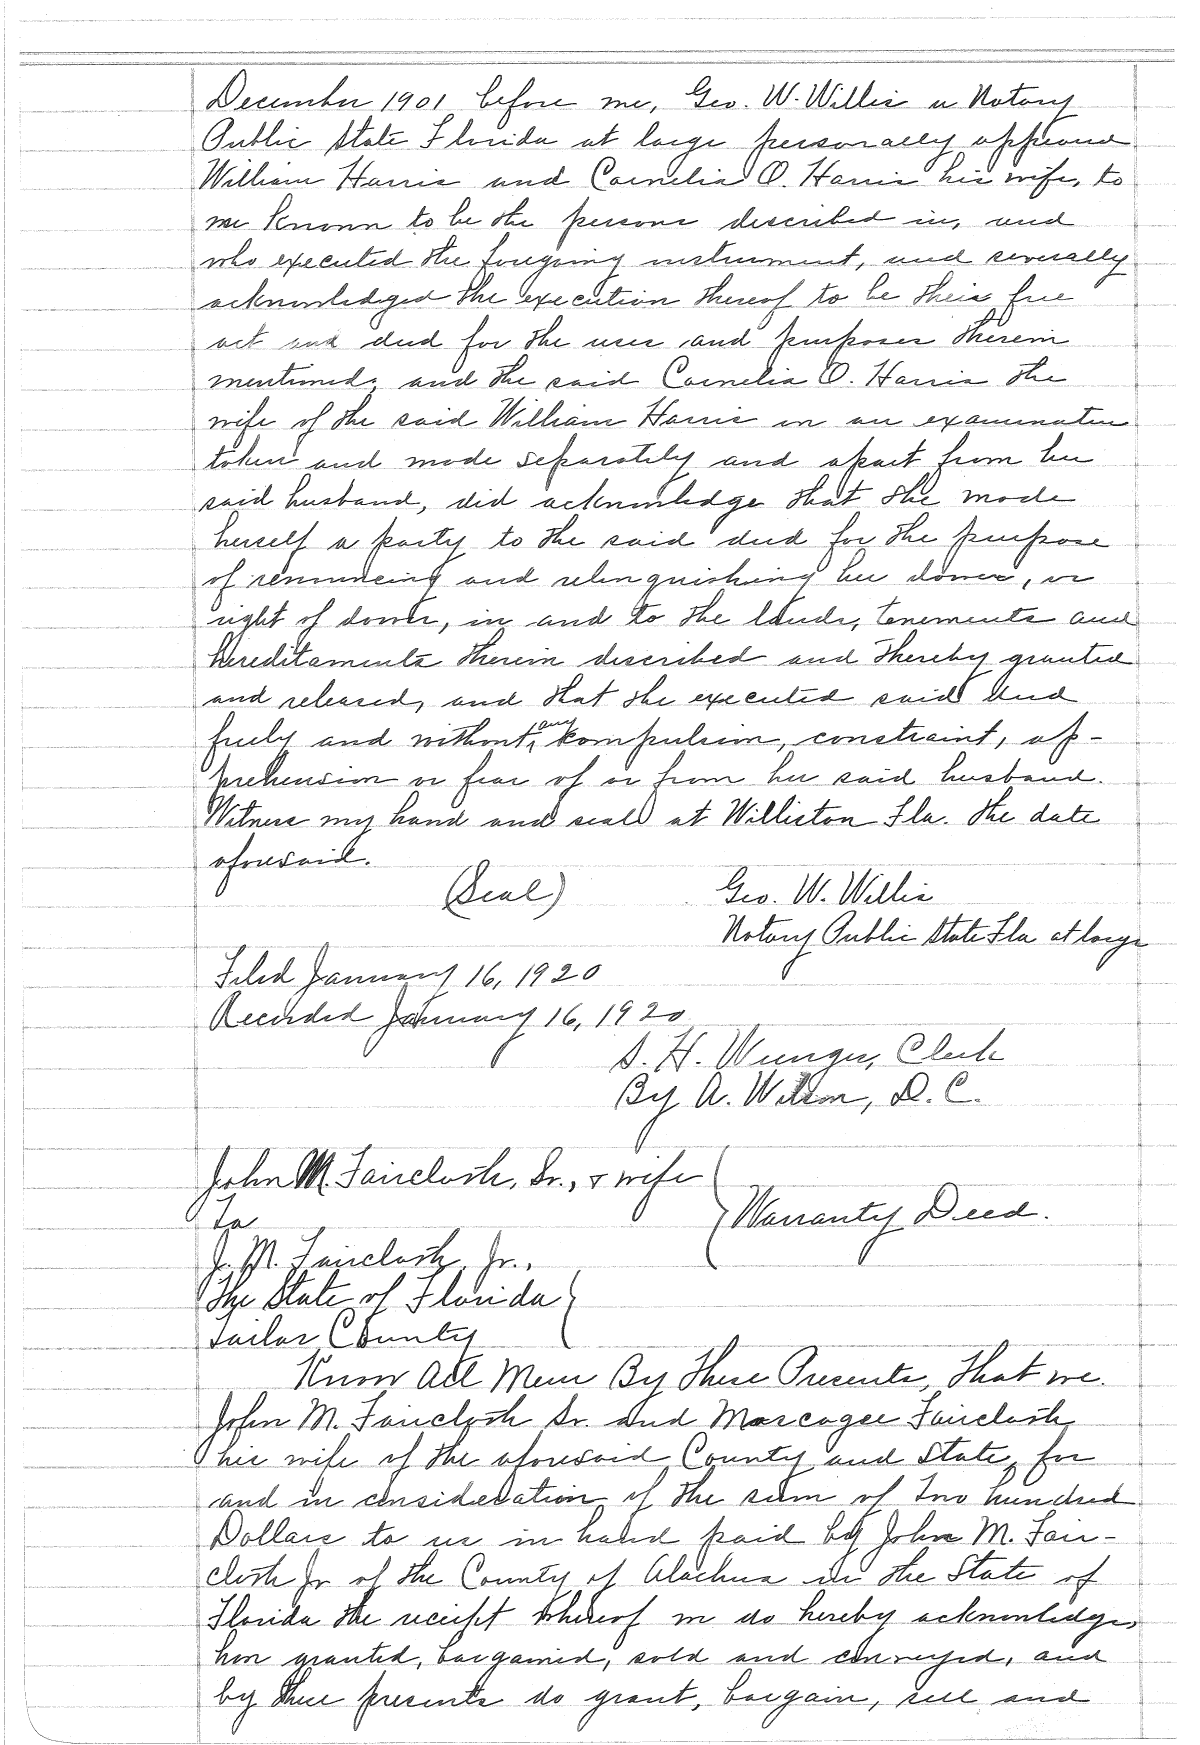 December 1901 before me, Geo. W. Willis a Notary
Public State Florida at large personally appeared
William Harris and Cornelia O. Harris his wife, to
me known to be the persons described in, and
who executed the foregoing instrument, and severally
acknowledged the execution thereof to be their free
act and deed for the uses and purposes therein
mentioned; and the said Cornelia O. Harris the
wife of the said William Harris in an examination
taken and made separately and apart from her
said husband, did acknowledge that she made
herself a party to the said deed for the purpose
of renouncing and relinquishing her dower, or
right of dower, in and to the lands, tenements and
hereditaments therein described and thereby granted
and released, and that she executed said deed
freely and without any compulsion, constraint, ap-
prehension or fear of or from her said husband.
Witness my hand and seal at Williston Fla. the date
aforesaid.
(Seal) Geo. W. Willis
Notary Public State Fla at large
Filed January 16, 1920
Recorded January 16, 1920
S. H. Wienges, Clerk
By A. Wilson, D. C.
John M. Faircloth, Sr., & wife
To Warranty Deed.
J. M. Faircloth, Jr.,
The State of Florida
Tailor County
Know All Men By These Presents, That we.
John M. Faircloth Sr. and Moscogee Faircloth
his wife of the aforesaid County and State, for
and in consideration of the sum of Two hundred
Dollars to us in hand paid by John M. Fair-
cloth Jr of the County of Alachua in the State of
Florida the receipt whereof we do hereby acknowledge,
have granted, bargained, sold and conveyed, and
by these presents do grant, bargain, sell and